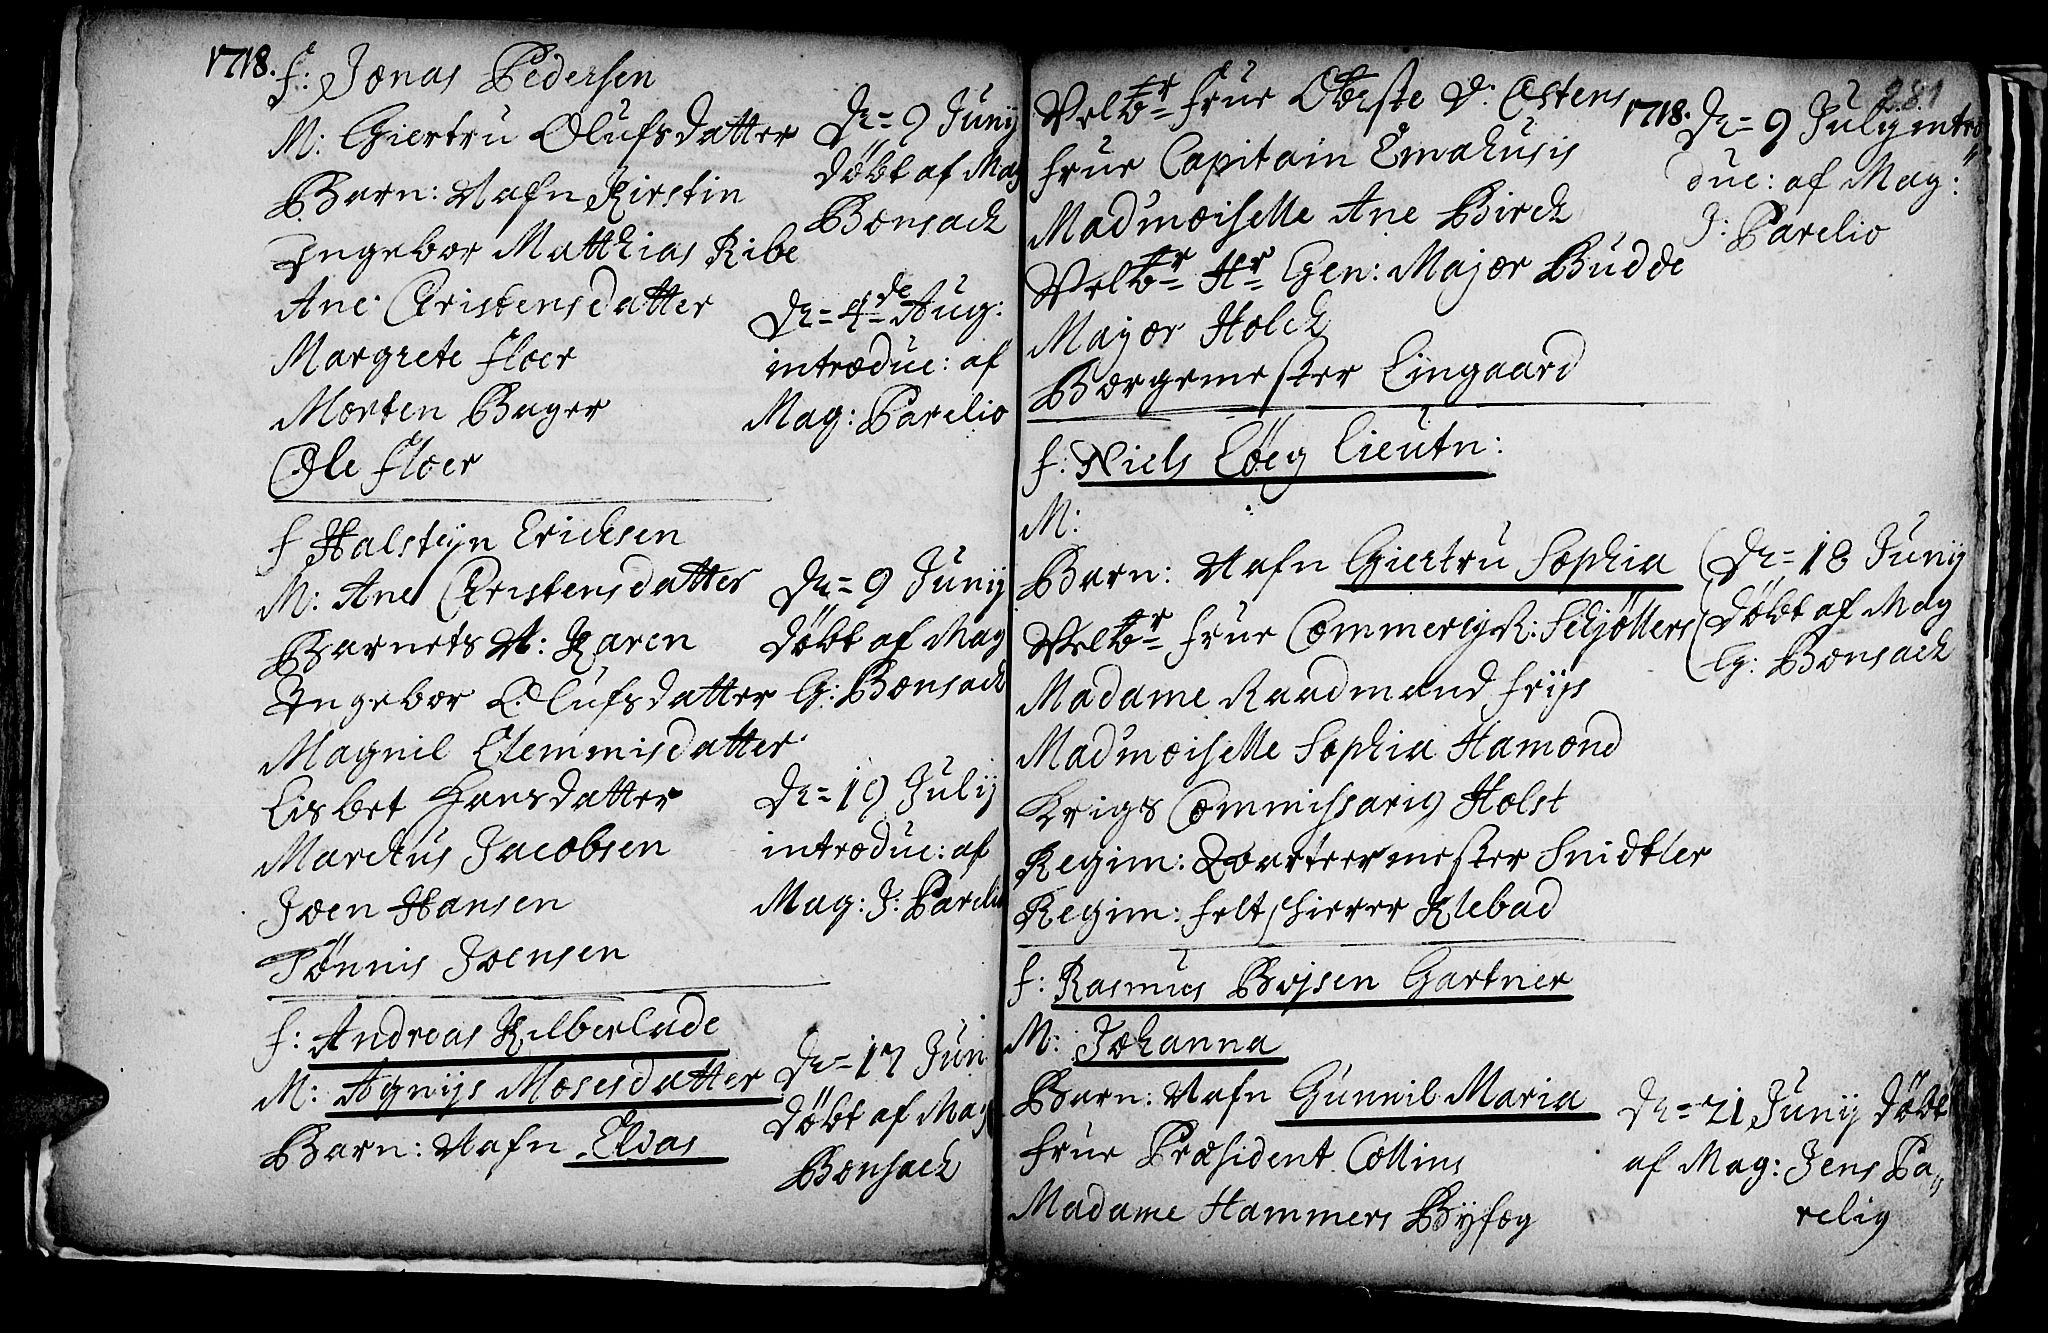 1718.
f: Jonas Pedersen
M: Giertru Olufsdatter
Barn: Nafn Kirstin
Ingebor Matthias Ribe
Ane Christensdatter
Margrete Floer
Morten Bager
Ole Floer
D: 9 Junij
döbt af Mag
Bonsach
D: 4de Aug:
introduc: af
Mag: Parelio
f Halsteijn Erichsen
M: Ane Christensdatter
Barnets N: Karen
Ingebor Olufsdatter
Magnil Clemmisdatter
Lisbet Hansdatter
Marckus Jacobsen
Joen Hansen
Tönnis Joensen
D: 9 Junij
döbt af Mag
G: Bonsach
D: 19 Julij
introduc: af
Mag: J: Parelio
f: Andreas Kilberlade
M: Agnijs Mosesdatter
Barn: Nafn Eldas
D: 17 Jun
döbt af Mag
Bonsach
281
Velbr frue Oberste v: Ostens
frue Capitain Emahusis
Mad'moiselle Ane Birch
Velbr Hr Gen: Major Budde
Major Holck
Borgemester Lingaard
1718. D: 9 Julij intro
duc: af Mag:
J: Parelio
f: Niels Löeg Lieutn:
M:
Barn: Nafn Giertru Sophia
Velbr frue Commercij R: Schjöllers
Madame Raadmand friis
Mad'moiselle Sophia Hamond
Krigs Commissarig Holst
Regim: Qvarteermester Snidtler
Regim: feltschierer Klebad
D: 18 Junij
döbt af Mag
G: Bonsach
f: Rasmus Bojsen Gartner
M: Johanna
Barn: Nafn Gunnil Maria
frue Præsident Collins
Madame Hammers Byfog
D: 21 Junij döbt
af Mag: Jens Pa
relig